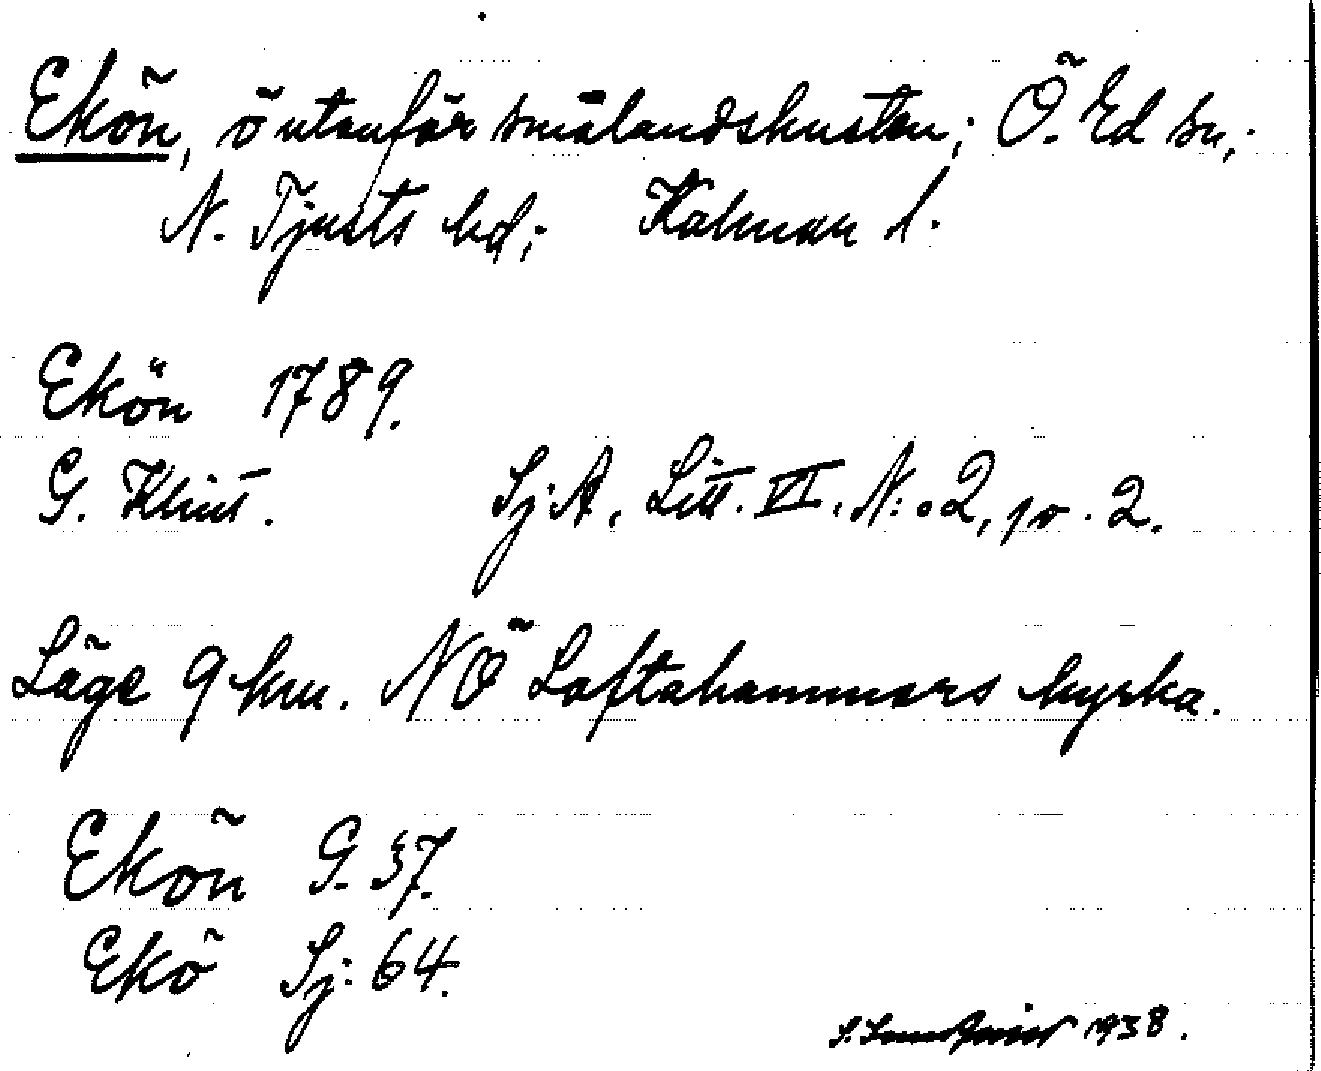 Ekön, ö utanför smålandskusten; Ö. Ed sn,;
N. Tjusts hd; Kalmar l.
Ekön 1789.
G. Klint. Sj:A, Litt. VI. N:o 2, pr. 2.
Läge 9 km. NÖ Loftahammars kyrka.
Ekön G. 37.
Ekö Sj: 64.
1938.